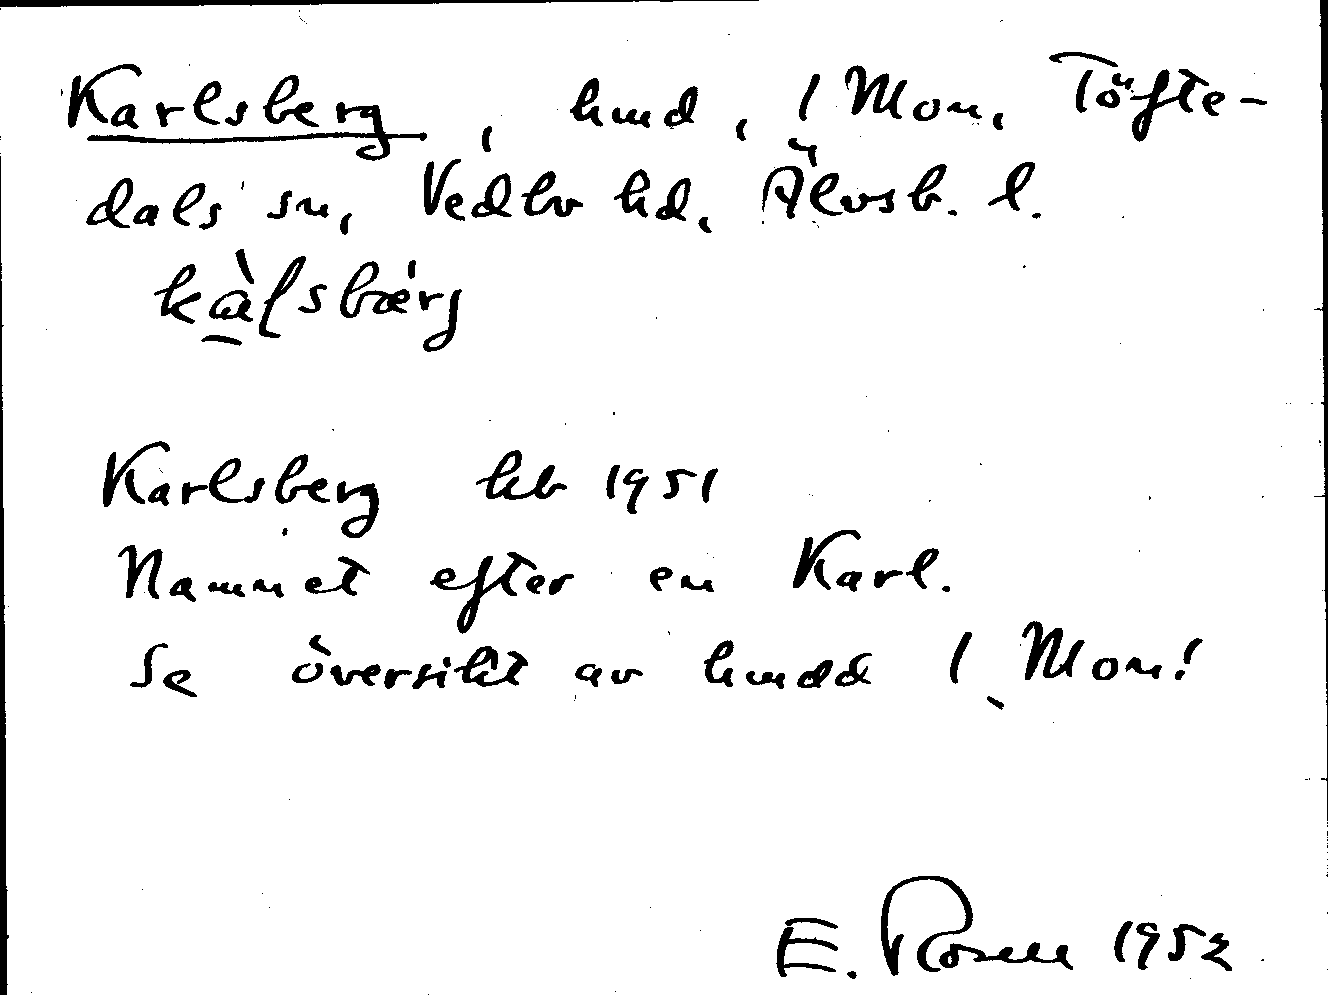 Karlsberg, hmd, 1 Mon, Töfte-
dals sn, Vedbo hd, Älvsb. l.
kàlsbærg
Karlsberg kb 1951
Namnet efter en Karl.
Se översikt av hmdd 1 Mon!
E. Rosell 1952